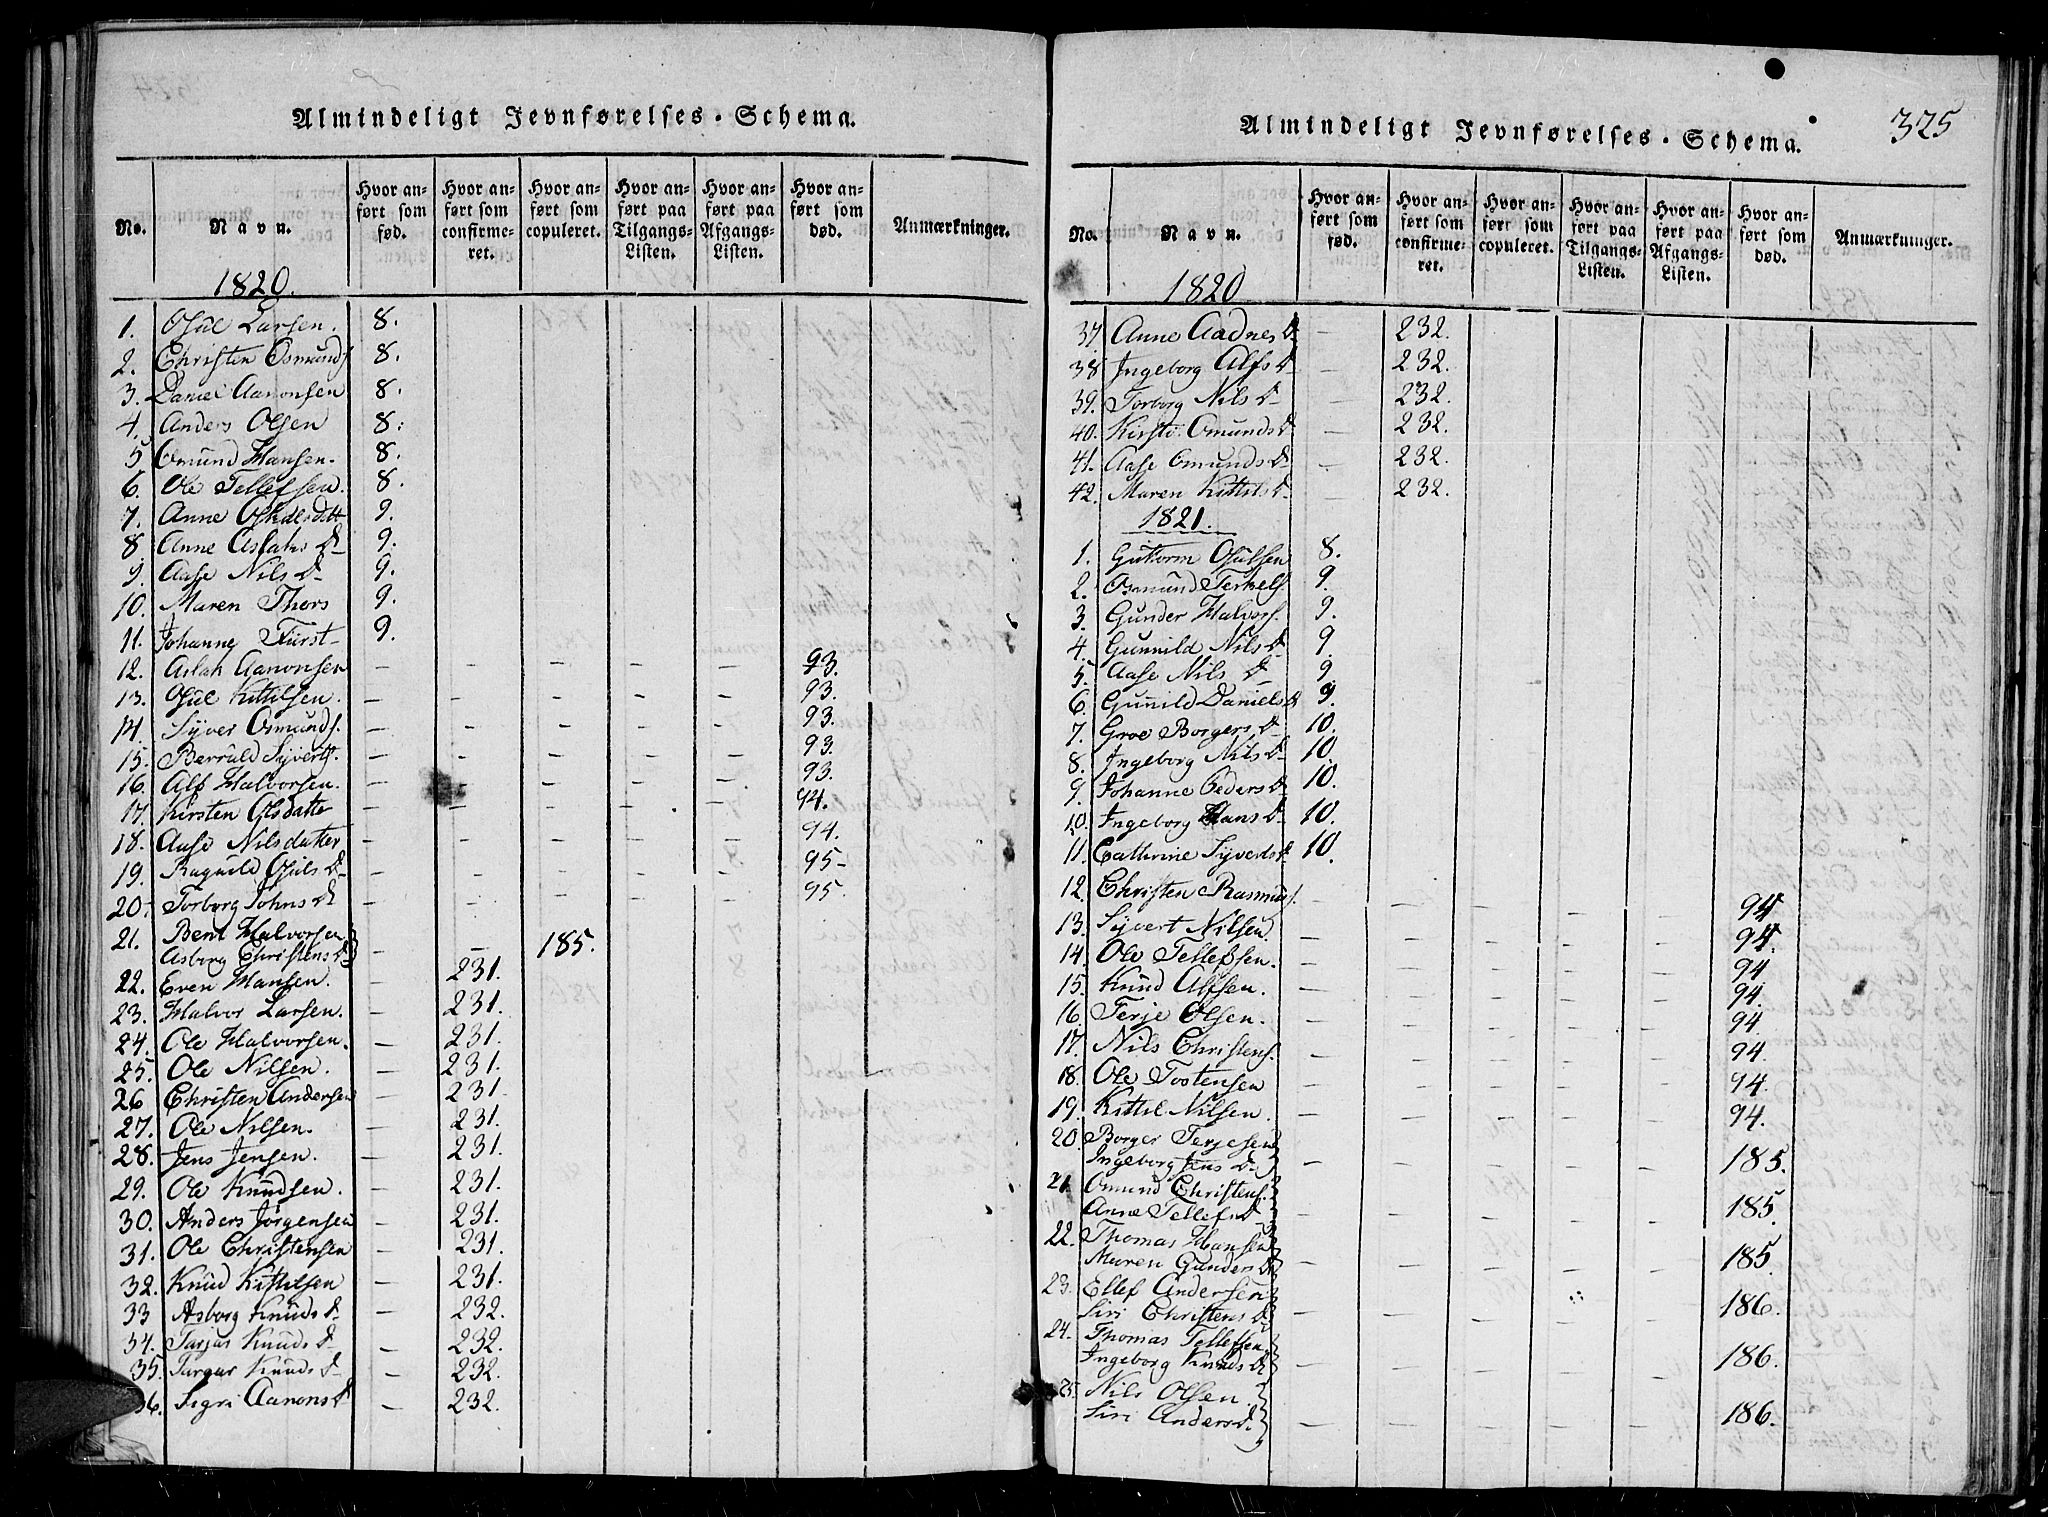 Almindeligt Jevnførelses-Schema.
No. Navn. Hvor anført som fød. Hvor anført som confirmeret. Hvor anført som copuleret. Hvor anført paa Tilgangs-Listen. Hvor anført paa Afgangs-Listen. Hvor anført som død. Anmærkninger.
1820.
1. Osul Larsen. 8.
2. Christen Osmunds. 8.
3. Daniel Aanonsen 8.
4. Anders Olsen 8.
5 Omund Hansen. 8.
6. Ole Tellefsen. 8.
7. Anne 9.
8 Anne Aslaks D 9.
9. Aase Nils D 9.
10. Maren Thors 9.
11. Johanne Fürst 9.
12. Aslak Aanonsen - - - - - 93.
13. Osul Kittilsen. - - - - - 93.
14. Syver Osmunds. - - - - - 93.
15. Berruld Syverts. - - - - - 93.
16. Alf Halvorsen. - - - - - 93.
17. Kirsten Olsdatter - - - - - 94.
18. Aase Nilsdatter - - - - - 94.
19. Ragnild Osuls D - - - - - 95-
20. Torborg Johns D - - - - - 95
21. Bent Halvorsen
Asborg Christens D - - 185.
22. Even Hansen. - 231.
23. Halvor Larsen. - 231.
24. Ole Halvorsen. - 231.
25. Ole Nilsen. - 231.
26 Christen Andersen - 231.
27. Ole Nilsen. - 231.
28. Jens Jensen. - 231.
29. Ole Knudsen. - 231.
30. Anders Jørgensen - 231.
31. Ole Christensen - 231.
32. Knud Kittilsen - 231.
33 Asborg Knuds D - 232.
34. Tarjus Knuds D - 232.
35. Targar Knuds D - 232.
36. Sigri Aanons D - 232.
Almindeligt Jevnførelses-Schema. 325
No. Navn. Hvor anført som fød. Hvor anført som confirmeret. Hvor anført som copuleret. Hvor anført paa Tilgangs-Listen. Hvor anført paa Afgangs-Listen. Hvor anført som død. Anmærkninger.
1820
37 Anne Aadnes D - 232.
38 Ingeborg Alfs D - 232.
39. Torborg Nils D - 232.
40. Kirsti Omunds D - 232.
41. Aase Omunds D - 232.
42. Maren Kittils D - 232.
1821.
1. Guttorm Osulsen 8.
2. Osmund Terkels. 9.
3. Gunder Halvors. 9.
4. Gunnild Nils D 9.
5. Aase Nils D 9
6. Gunild Daniels D 9.
7. Groe Borgers D 10.
8. Ingeborg Nils D 10.
9. Johanne Peders D 10.
10. Ingeborg Hans D 10.
11. Cathrine Syverts D 10.
12. Christen Rasmus. - - - - - 94
13. Syvert Nilsen. - - - - - 94.
14. Ole Tellefsen. - - - - - 94
15. Knud Alfsen. - - - - - 94.
16. Terje Olsen. - - - - - 94
17. Nils Christens. - - - - - 94.
18. Ole Tostensen - - - - - 94.
19. Kittil Nilsen. - - - - - 94.
20. Borger Terjesen
Ingeborg Jens D - - - - - 185.
21. Omund Christens.
Anne Tellefs D - - - - - 185.
22. Thomas Hansen
Maren Gunders D - - - - - 185.
23. Ellef Andersen
Siri Christens D - - - - - 186.
24. Thomas Tellefsen.
Ingeborg Knuds D - - - - - 186.
25. Nils Olsen.
Siri Anders D - - - - - 186.